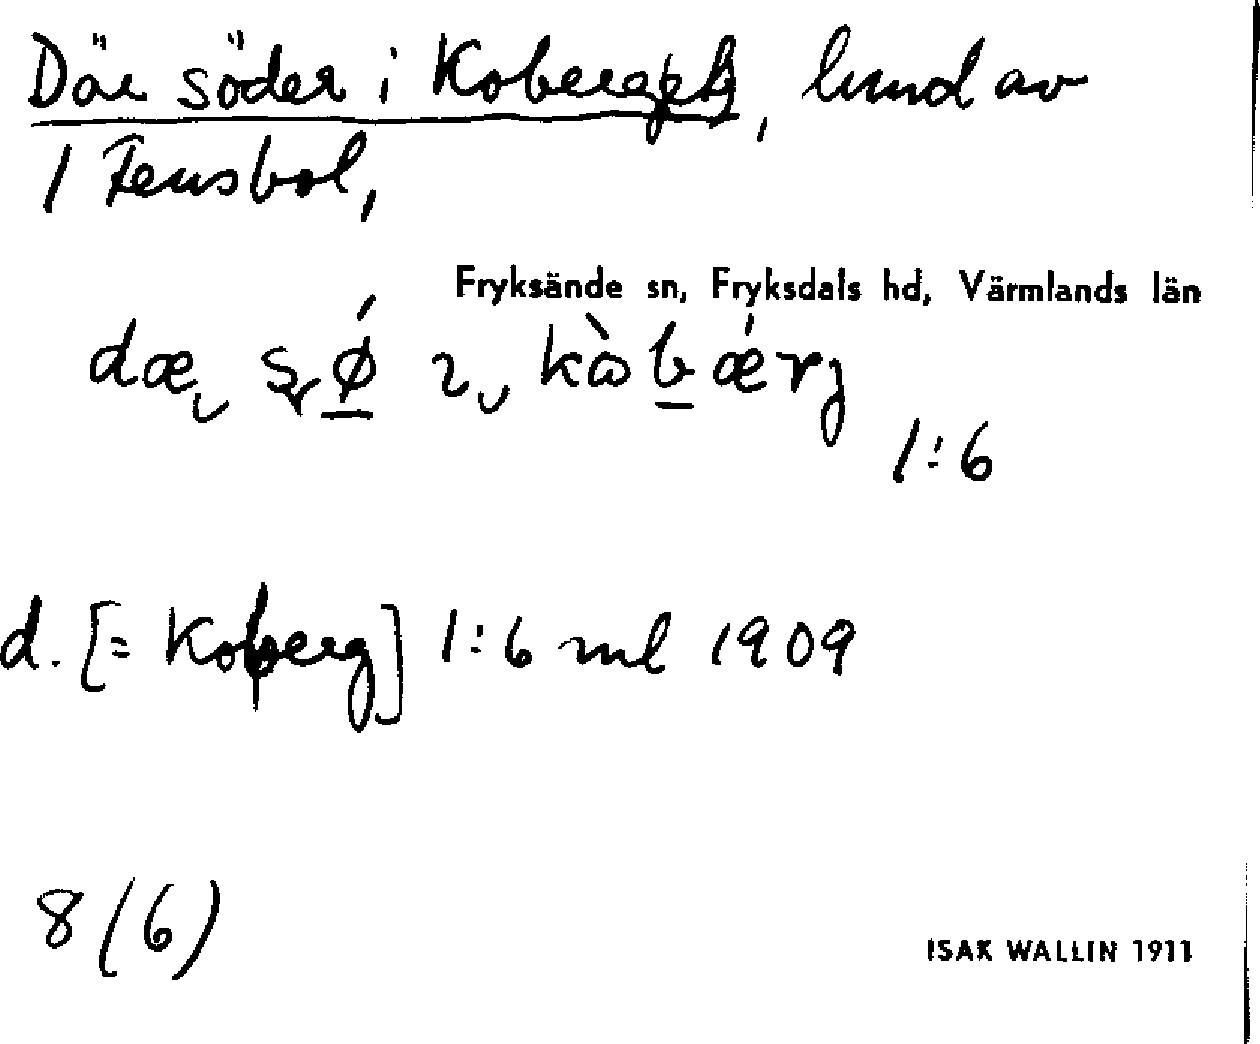 Där söder i Koberget, lund av
1 Fensbol,
Fryksände sn, Fryksdals hd, Värmlands län
dæ sø ı kòbǽrj
1:6
d. [= Koberg] 1:6 ml 1909
8 (6)
ISAK WALLIN 1911